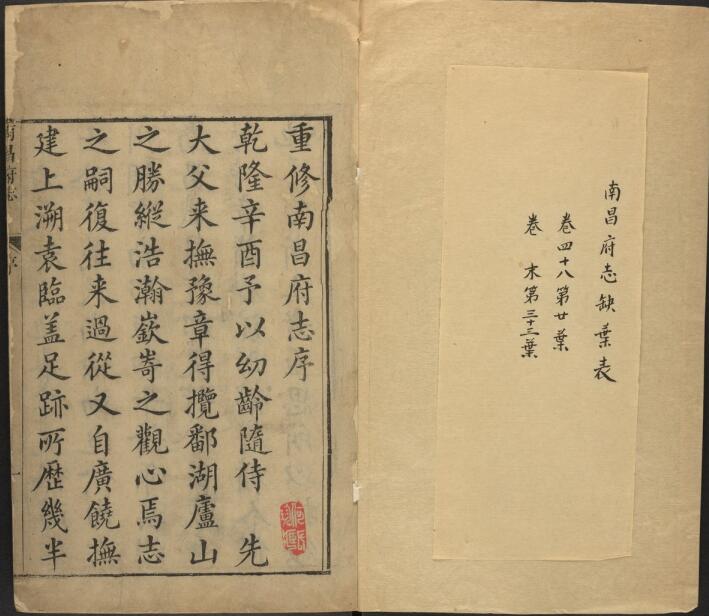 南昌府志缺葉表
卷四十八第廿葉
卷末第三十三葉
重修南昌府志序
乾隆辛酉予以幼齡隨侍 先
大父来撫豫章得攬鄱湖廬山
之勝縱浩瀚嶔嵜之觀心焉志
之嗣復往来過從又自廣饒撫
建上溯袁臨盖足跡所歷幾半
南昌府志
序